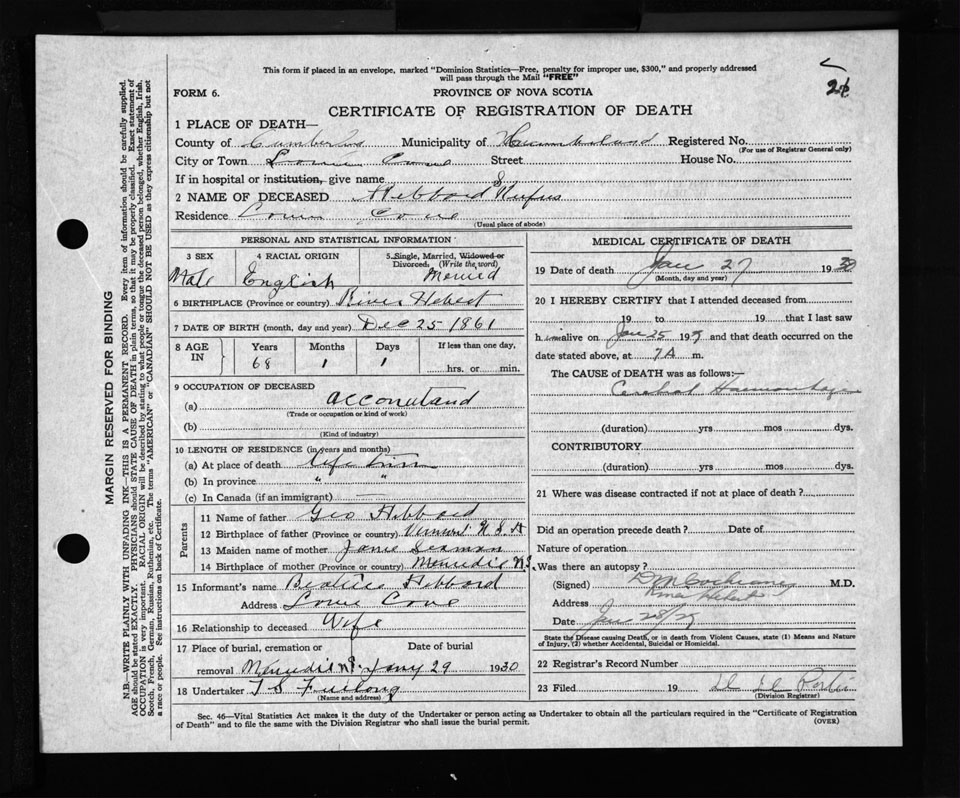 This form if placed in an envelope, marked "Dominion Statistics—Free, penalty for improper use, $300," and properly addressed
will pass through the Mail "FREE"
FORM 6.
PROVINCE OF NOVA SCOTIA
CERTIFICATE OF REGISTRATION OF DEATH
1 PLACE OF DEATH—
County of Municipality of Registered No.
(For use of Registrar General only)
City or Town Street House No.
If in hospital or institution, give name
2 NAME OF DECEASED Hibbard Rufus
Residence Cove
(Usual place of abode)
PERSONAL AND STATISTICAL INFORMATION
3 SEX
Male
4 RACIAL ORIGIN
English
5 Single, Married, Widowed or
Divorced. (Write the word)
Married
6 BIRTHPLACE (Province or country) River Hebert
7 DATE OF BIRTH (month, day and year) Dec 25 1861
8 AGE IN
Years Months Days If less than one day,
68 1 1 hrs. or min.
9 OCCUPATION OF DECEASED
(a)
(Trade or occupation or kind of work)
(b)
(Kind of industry)
10 LENGTH OF RESIDENCE (in years and months)
(a) At place of death life time
(b) In province " "
(c) In Canada (if an immigrant) —
Parents
11 Name of father Geo Hibbard
12 Birthplace of father (Province or country) Vermont U.S.A
13 Maiden name of mother Seaman
14 Birthplace of mother (Province or country)
15 Informant's name Hibbard
Address Cove
16 Relationship to deceased Wife
17 Place of burial, cremation or Date of burial
removal 29 1930
18 Undertaker T S Furlong
(Name and address)
MEDICAL CERTIFICATE OF DEATH
19 Date of death Jan 27 1930
(Month, day and year)
20 I HEREBY CERTIFY that I attended deceased from
19 to 19 that I last saw
h im alive on Jan 25 19 and that death occurred on the
date stated above, at 7A m.
The CAUSE of DEATH was as follows:—
Cerebral
(duration) yrs mos dys.
CONTRIBUTORY
(duration) yrs mos dys.
21 Where was disease contracted if not at place of death?
Did an operation precede death? Date of
Nature of operation
Was there an autopsy?
(Signed) Cochrane M.D.
Address River Hebert
Date Jan 28/
State the Disease causing Death, or in death from Violent Causes, state (1) Means and Nature
of Injury, (2) whether Accidental, Suicidal or Homicidal.
22 Registrar's Record Number
23 Filed 19
(Division Registrar)
Sec. 46—Vital Statistics Act makes it the duty of the Undertaker or person acting as Undertaker to obtain all the particulars required in the "Certificate of Registration
of Death" and to file the same with the Division Registrar who shall issue the burial permit.
(OVER)
MARGIN RESERVED FOR BINDING
N.B.—WRITE PLAINLY WITH UNFADING INK—THIS IS A PERMANENT RECORD. Every item of information should be carefully supplied.
AGE should be stated EXACTLY. PHYSICIANS should STATE CAUSE OF DEATH in plain terms, so that it may be properly classified. Exact statement of
OCCUPATION is very important. RACIAL ORIGIN will be described by stating to what people or tongue the deceased person belonged, whether English, Irish,
Scotch, French, German, Russian, Ruthenian, etc. The terms "AMERICAN" or "CANADIAN" SHOULD NOT BE USED as they express citizenship but not
a race or people. See instructions on back of Certificate.